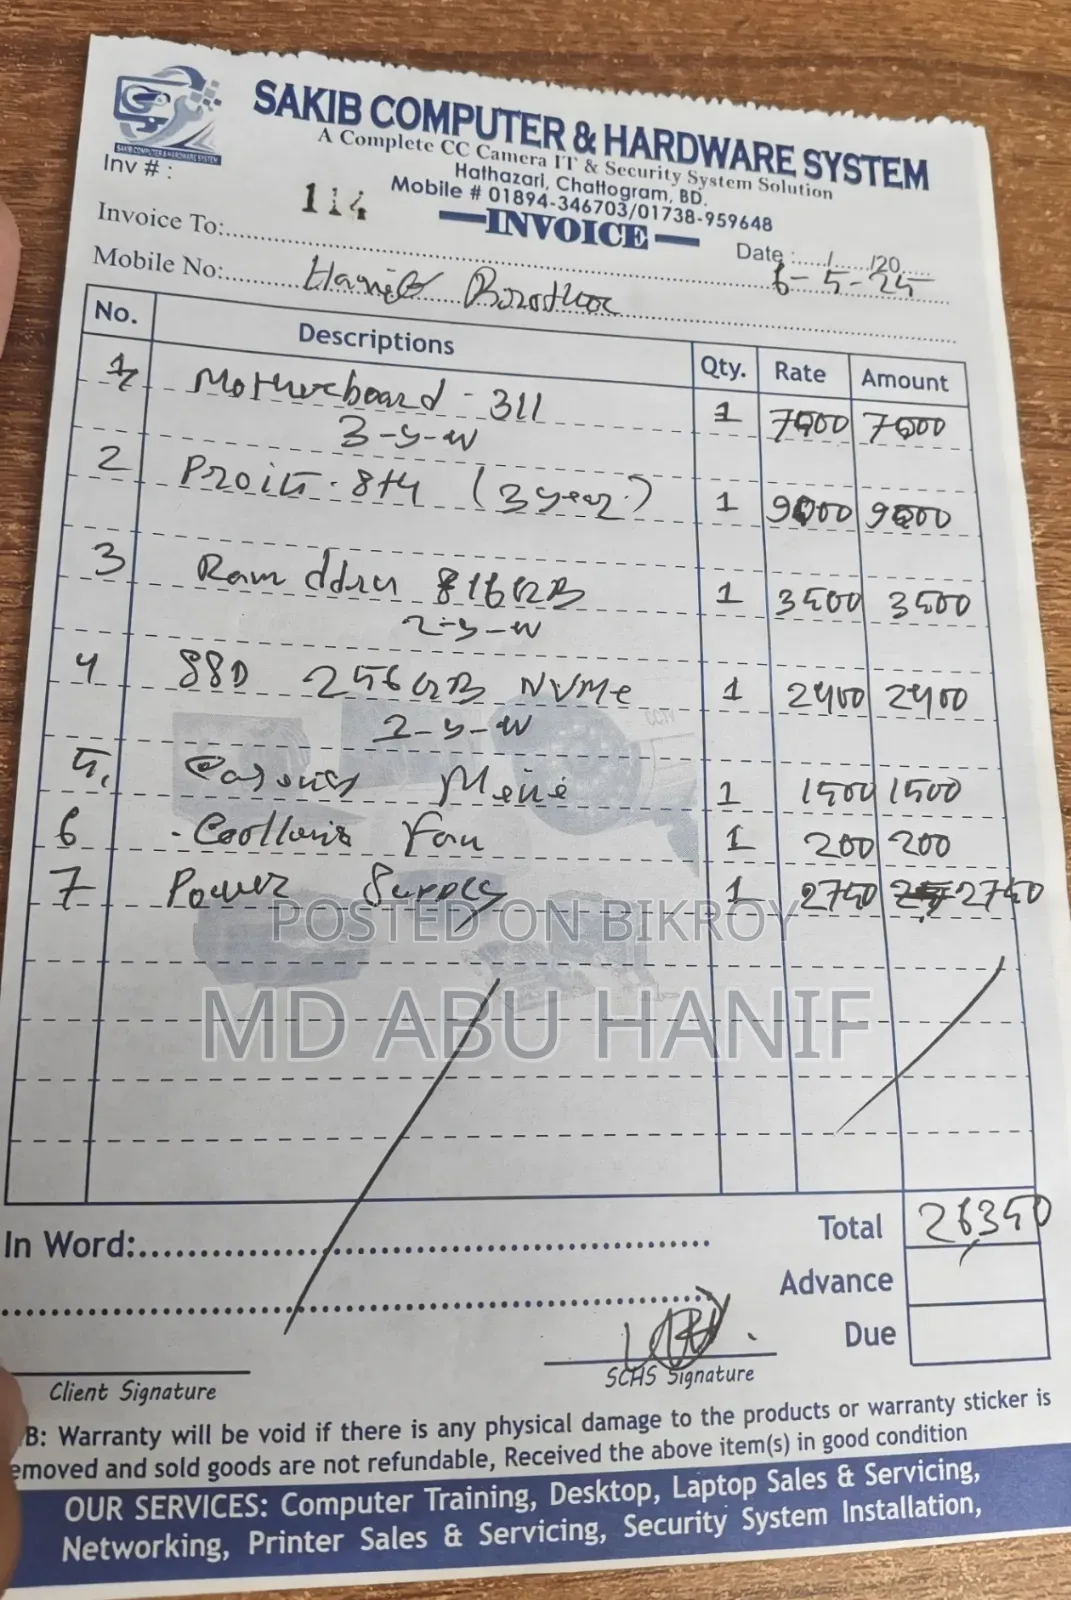 SAKIB COMPUTER & HARDWARE SYSTEM
A Complete CC Camera IT & Security System Solution
Hathazari, Chattogram, BD.
Mobile # 01894-346703/01738-959648
SAKIB COMPUTER & HARDWARE SYSTEM
Inv # : 114
INVOICE
Date :...../...../20..... 6-5-25
Invoice To:
Mobile No:
No. Descriptions Qty. Rate Amount
1 Motherboard - 311 1 7000 7000
3-y-w
2 8th (3 year) 1 9000 9000
3 Ram ddr4 16GB 1 3500 3500
2-y-w
4 SSD 256GB NVMe 1 2400 2400
2-y-w
5. 1 1500 1500
6 Fan 1 200 200
7 Power Supply 1 2750 2750
POSTED ON BIKROY
MD ABU HANIF
In Word: Total 26,350
Advance
Due
Client Signature
SCHS Signature
B: Warranty will be void if there is any physical damage to the products or warranty sticker is
emoved and sold goods are not refundable, Received the above item(s) in good condition
OUR SERVICES: Computer Training, Desktop, Laptop Sales & Servicing,
Networking, Printer Sales & Servicing, Security System Installation,